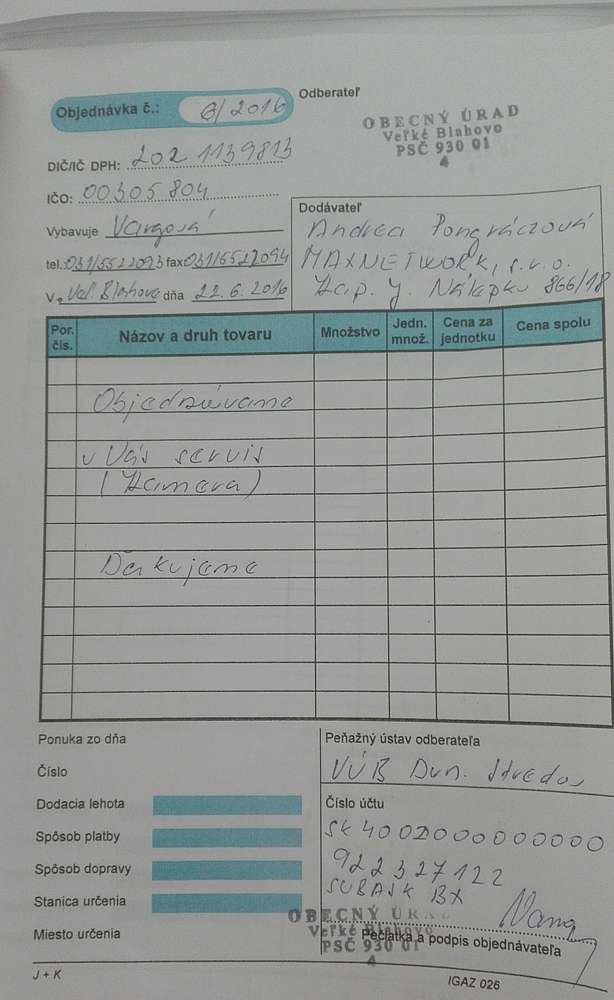 Objednávka č.: 6/2016
Odberateľ
OBECNÝ ÚRAD
Veľké Blahovo
PSČ 930 01
4
DIČ/IČ DPH: 202 1139813
IČO: 00305804
Vybavuje Vargová
tel. 031/5522093 fax 031/5522094
V Veľ. Blahove dňa 22.6.2016
Dodávateľ
Andrea Pongráczová
MAXNETWORK, s.r.o.
Kap. J. Nálepku 866/18
Por. čís. Názov a druh tovaru Množstvo Jedn. množ. Cena za jednotku Cena spolu
Objednávame
u Vás servis
(Kamera)
Ďakujeme
Ponuka zo dňa
Číslo
Dodacia lehota
Spôsob platby
Spôsob dopravy
Stanica určenia
Miesto určenia
Peňažný ústav odberateľa
VÚB Dun. Streda
Číslo účtu
SK 4002000000000
922327122
SUBASK BX
OBECNÝ ÚRAD
Veľké Blahovo
PSČ 930 01
4
Pečiatka a podpis objednávateľa
J + K
IGAZ 026